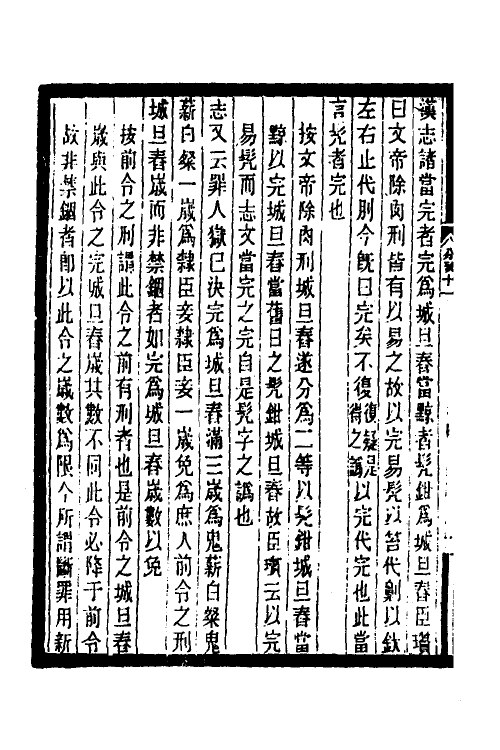 漢志諸當完者完爲城旦舂當黥者髡鉗爲城旦舂臣瓚
曰文帝除肉刑皆有以易之故以完易髡以笞代劓以釱
左右止代刖今旣曰完矣不復復疑是得之譌以完代完也此當
言髡者完也
按文帝除肉刑城旦舂遂分爲二等以髡鉗城旦舂當
黥以完城旦舂當舊日之髡鉗城旦舂故臣瓚云以完
易髡而志文當完之完自是髡字之譌也
志又云罪人獄已決完爲城旦舂滿三歲爲鬼薪白粲鬼
薪白粲一歲爲隸臣妾隸臣妾一歲免爲庶人前令之刑
城旦舂歲而非禁錮者如完爲城旦舂歲數以免
按前令之刑謂此令之前有刑者也是前令之城旦舂
歲與此令之完城旦舂歲其數不同此令必降于前令
故非禁錮者卽以此令之歲數爲限今所謂斷罪用新